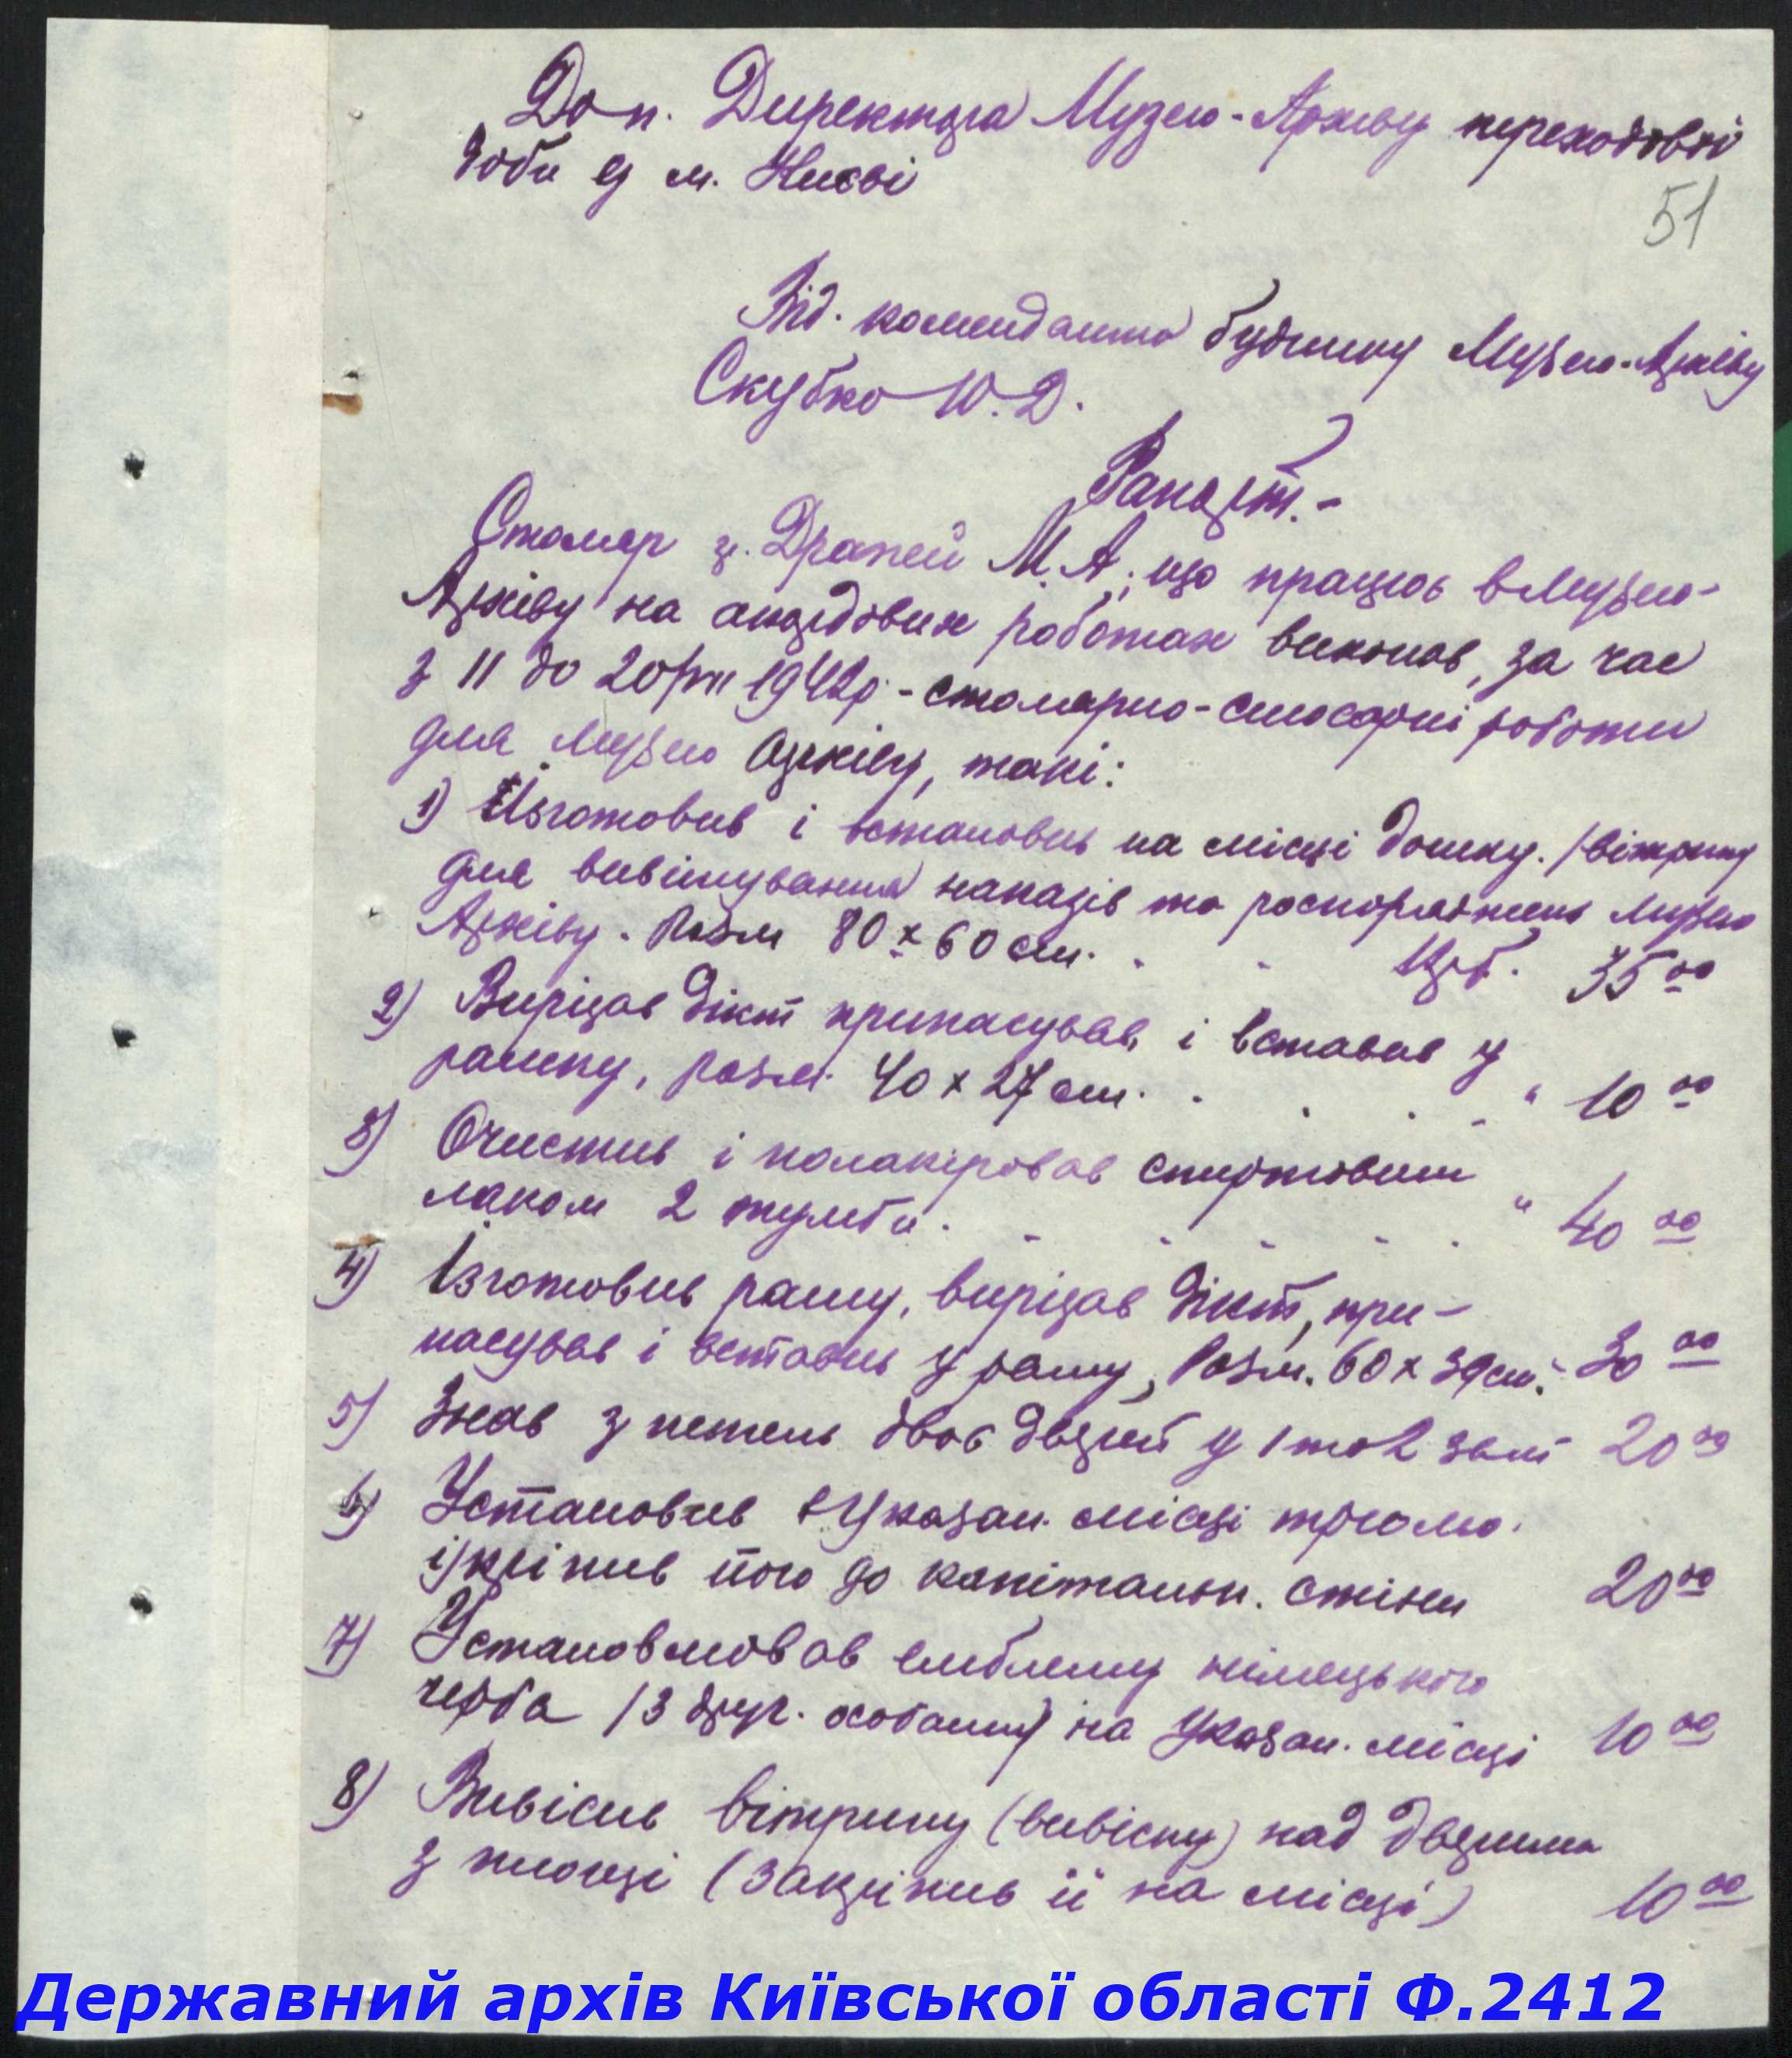 До п. Директора Музею-Архіву переходової
доби у м. Києві
51
Від. коменданта будинку Музею-Архіву
Скубко Ю. Д.
Рапорт.-
Столяр г. Драпей М. А., що працює в Музею-
Архіву на акордових роботах виконав, за час
з 11 до 20/VII 1942р - столярно-слюсарні роботи
для Музею Архіву, такі:
1) Ізготовив і встановив на місці дошку. /вітрину
для вивішування наказів та роспоряджень Музею
Архіву. Розм 80 х 60 см. . . Крб. 35 00
2) Вирізав дікт припасував, і вставив у
рамку, розм. 40 х 27 см. . . . . " 10 00
3) Очистив і полакіровав спиртовим
лаком 2 тумби. . . . . . " 40 00
4) Ізготовив раму, вирізав дікт, при-
пасував і вставив у раму, Розм. 60 х 39 см. 30 00
5) Зняв з петель двоє дверей у 1 та 2 залі 20 00
6) Установив в указан. місці трюмо.
і укріпив його до капітальн. стіни 20 00
7) Установлював емблему німецького
герба /З друг. особами/ на указан. місці 10 00
8) Вивісив вітрину (вивіску) над дверима
з площі (закріпив її на місці) 10 00
Державний архів Київської області Ф.2412